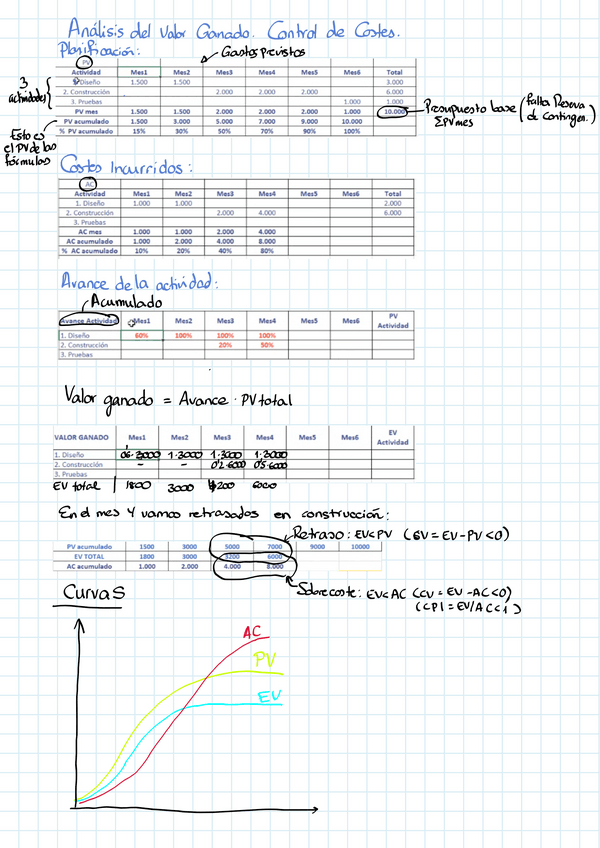 Análisis del Valor Ganado. Control de Costes.
Planificación:
Gastos previstos
PV
Actividad Mes1 Mes2 Mes3 Mes4 Mes5 Mes6 Total
1. Diseño 1.500 1.500 3.000
2. Construcción 2.000 2.000 2.000 6.000
3. Pruebas 1.000 1.000
PV mes 1.500 1.500 2.000 2.000 2.000 1.000 10.000
PV acumulado 1.500 3.000 5.000 7.000 9.000 10.000
% PV acumulado 15% 30% 50% 70% 90% 100%
3 actividades
Esto es
el PV de las
fórmulas
Presupuesto base (falta Reserva
ΣPVmes de Contingen.)
Costes Incurridos:
AC
Actividad Mes1 Mes2 Mes3 Mes4 Mes5 Mes6 Total
1. Diseño 1.000 1.000 2.000
2. Construcción 2.000 4.000 6.000
3. Pruebas
AC mes 1.000 1.000 2.000 4.000
AC acumulado 1.000 2.000 4.000 8.000
% AC acumulado 10% 20% 40% 80%
Avance de la actividad:
Acumulado
Avance Actividad Mes1 Mes2 Mes3 Mes4 Mes5 Mes6 PV Actividad
1. Diseño 60% 100% 100% 100%
2. Construcción 20% 50%
3. Pruebas
Valor ganado = Avance · PV total
VALOR GANADO Mes1 Mes2 Mes3 Mes4 Mes5 Mes6 EV Actividad
1. Diseño 0'6·3000 1·3000 1·3000 1·3000
2. Construcción - - 0'2·6000 0'5·6000
3. Pruebas
EV total 1800 3000 4200 6000
En el mes 4 vamos retrasados en construcción:
Retraso: EV<PV (SV = EV-PV <0)
PV acumulado 1500 3000 5000 7000 9000 10000
EV TOTAL 1800 3000 4200 6000
AC acumulado 1.000 2.000 4.000 8.000
Sobrecoste: EV<AC (CV = EV-AC<0)
(CPI = EV/AC<1)
Curva S
AC
PV
EV